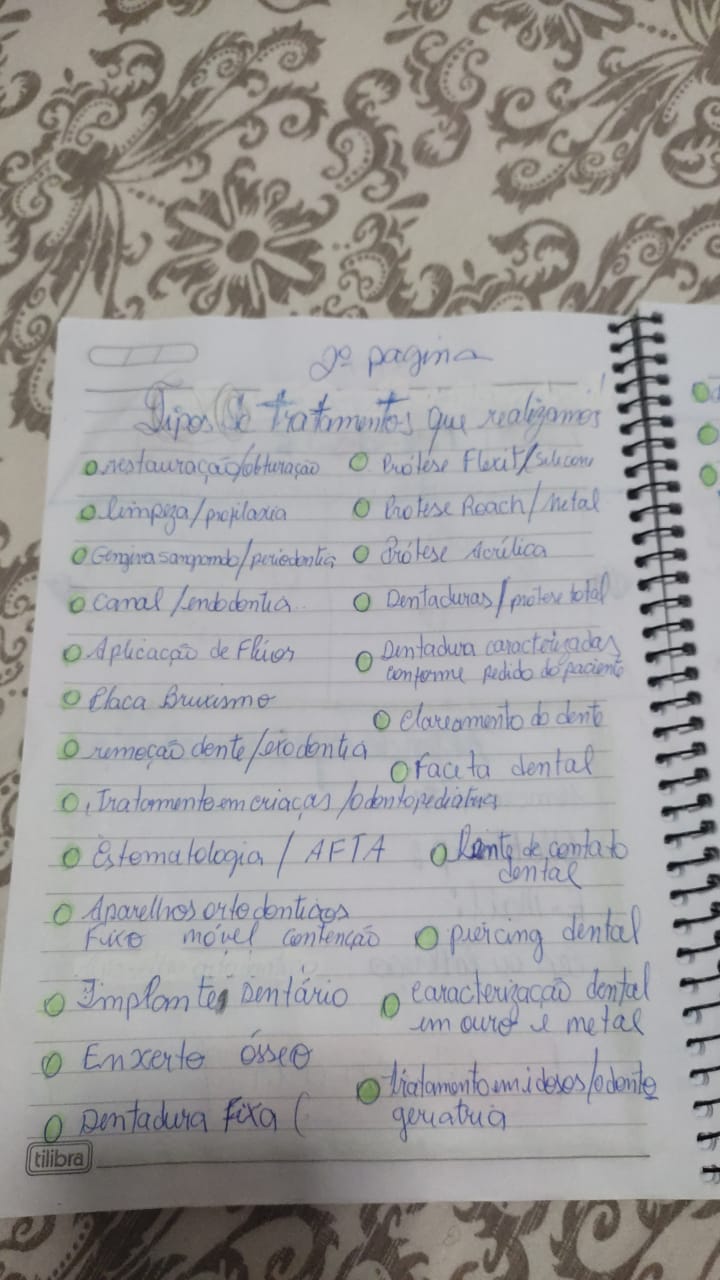 2º pagina
Tipos de tratamentos que realizamos
restauração/obturação
limpeza/profilaxia
Gengiva sangrando/periodontia
Canal/endodontia
Aplicação de Flúor
Placa Bruxismo
remoção dente/exodontia
Tratamento em criaças/odontopediatria
Estomatologia/AFTA
Aparelhos ortodonticos
Fixo móvel contenção
Implante Dentário
Enxerto ósseo
Dentadura Fixa (
Prótese Flexit/Silicone
Protese Roach/metal
Prótese Acrílica
Dentaduras/prótese total
Dentadura caracterizadas
conforme pedido do paciente
Clareamento do dente
Faceta dental
Lente de contato
dental
piercing dental
caracterização dental
em ouro e metal
tratamento em idosos/odonto
geriatria
tilibra